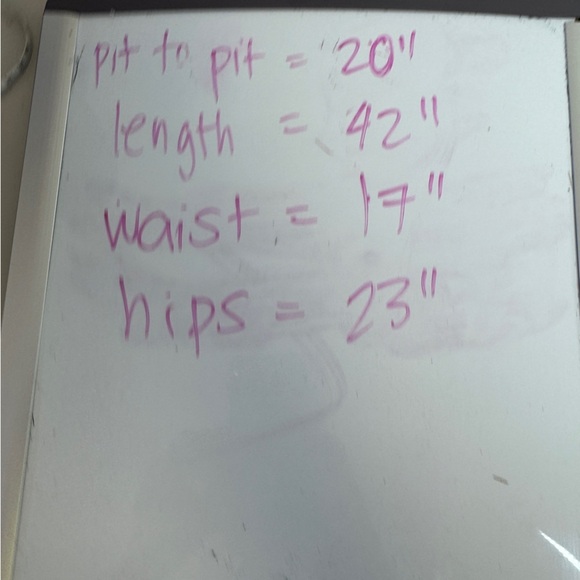 pit to pit = 20"
length = 42"
waist = 17"
hips = 23"